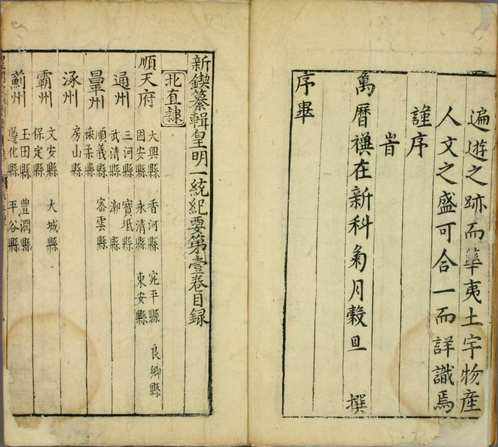 遍遊之跡而華夷土宇物產
人文之盛可合一而詳識焉
謹序
旹
萬曆禩在新科菊月穀旦 撰
序畢
新鍥纂輯皇明一統紀要第壹卷目錄
北直隸
順天府 大興縣 香河縣 宛平縣 良鄉縣
固安縣 永清縣 東安縣
通州 三河縣 寶坻縣
武清縣 漷縣
昌平州 順義縣 密雲縣
懷柔縣
涿州 房山縣
霸州 文安縣 大城縣
保定縣
薊州 玉田縣 豐潤縣
遵化縣 平谷縣